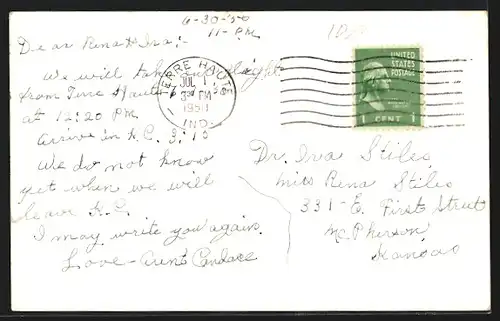 6-30-50
11-PM.
10
Dear Rena & Ira:-
We will take our flight
from Terre Haute
at 12:20 PM.
Arrive in K.C. 3:15
We do not know
yet when we will
leave K.C.
I may write you again.
Love - Aunt Candace
TERRE HAUTE
JUL 1
PM
IND.
UNITED
STATES
POSTAGE
1 CENT 1
Dr. Ira Stiles,
Miss Rena Stiles
331-E. First Street
McPherson
Kansas